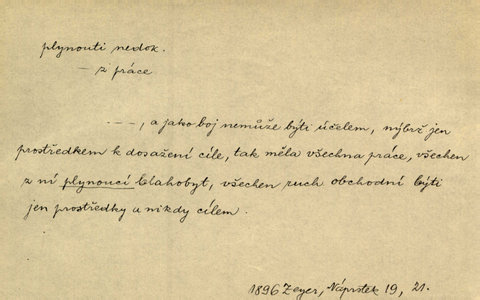 plynouti nedok.
— z práce
---, a jako boj nemůže býti účelem, nýbrž jen
prostředkem k dosažení cíle, tak měla všechna práce, všechen
z ní plynoucí blahobyt, všechen ruch obchodní býti
jen prostředky a nikdy cílem.
1896 Zeyer, Náprstek 19, 21.